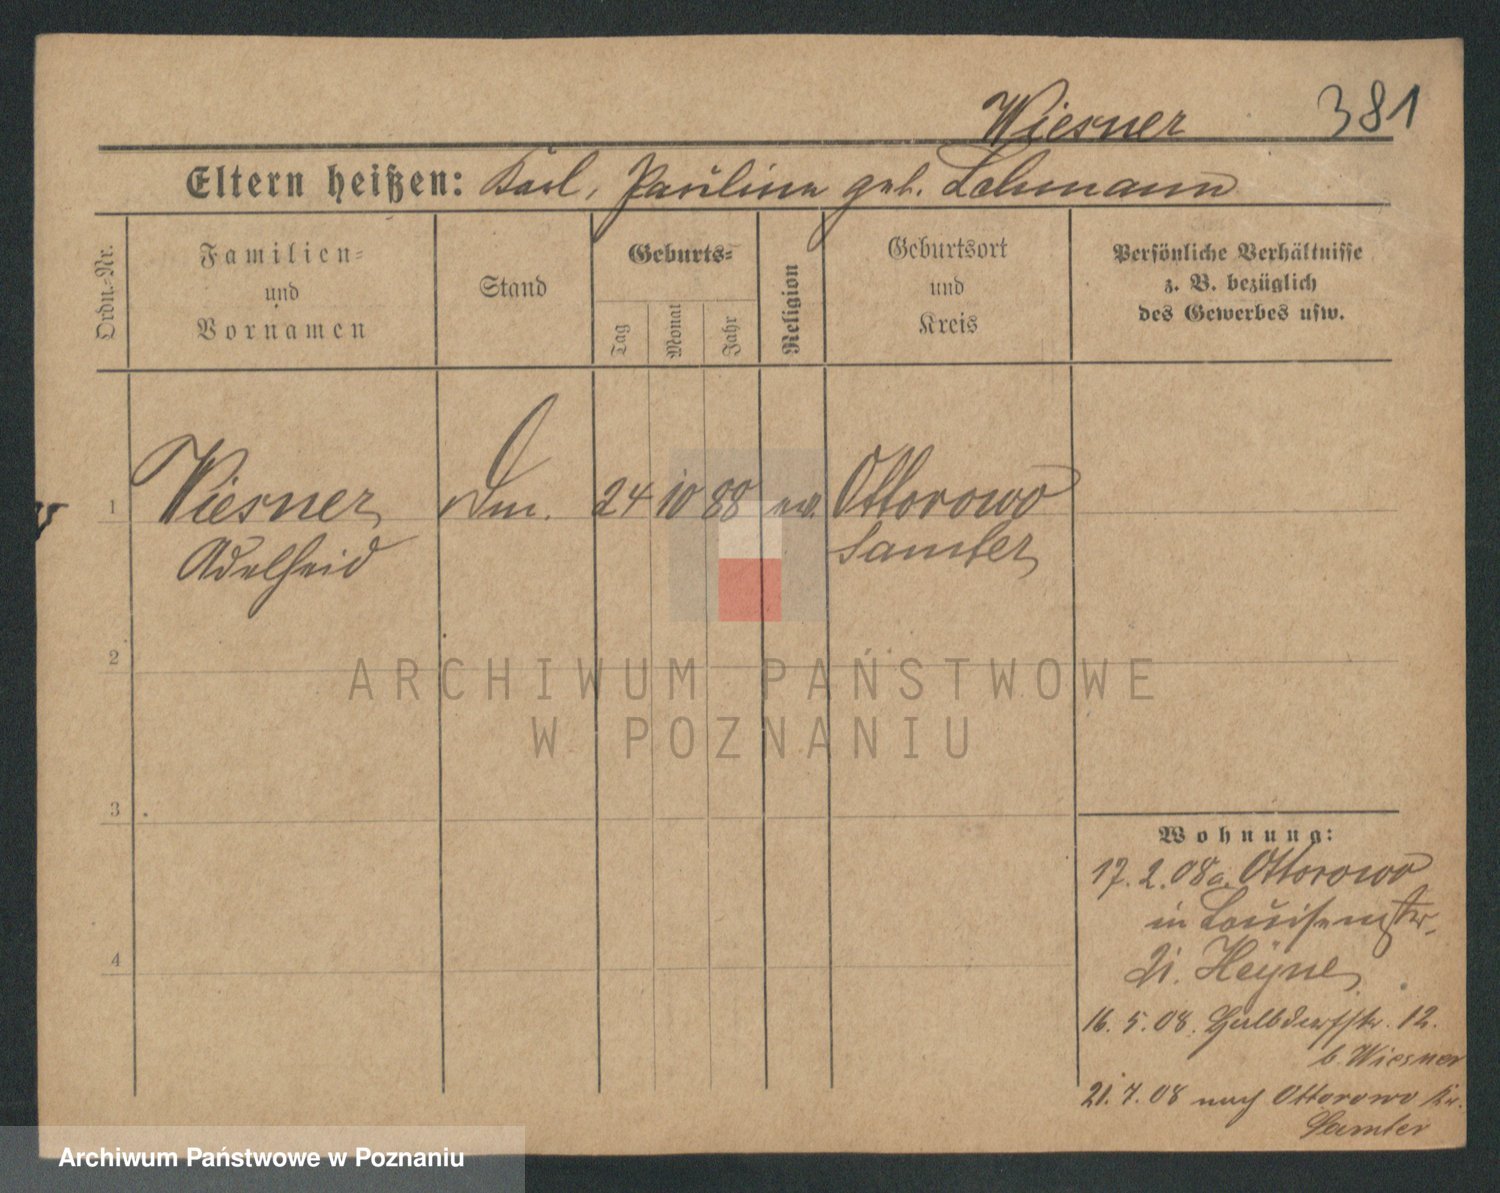 Wiesner 381
Eltern heißen: Karl, Pauline geb. Lehmann
Ordn.-Nr.
Familien-
und
Vornamen
Stand
Geburts-
Tag
Monat
Jahr
Religion
Geburtsort
und
Kreis
Persönliche Verhältnisse
z. B. bezüglich
des Gewerbes usw.
1 Wiesner 24 10 88 ev. Ottorowo
Adelheid Samter
2
3
4
ARCHIWUM PAŃSTWOWE
W POZNANIU
Wohnung:
17. 2. 08 a. Ottorowo
in Louisenstr.
21. Heyne
16. 5. 08. Halbdorfstr. 12.
b. Wiesner
21. 7. 08 nach Ottorowo Kr.
Samter
Archiwum Państwowe w Poznaniu